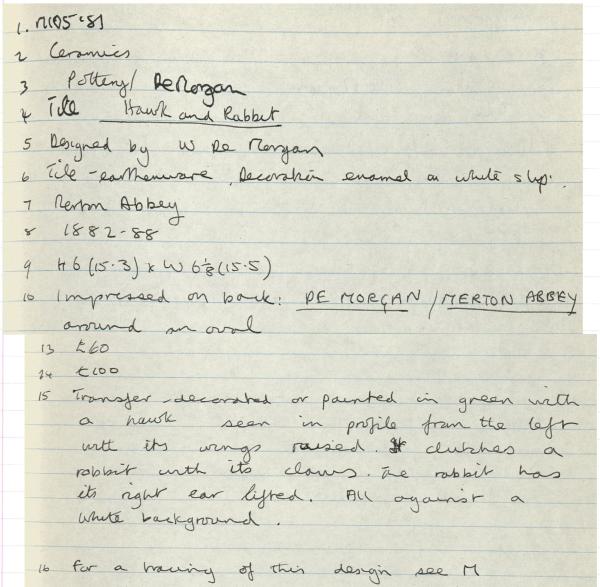 1. M105 '81
2 Ceramics
3 Pottery / De Morgan
4 Tile Hawk and Rabbit
5 Designed by W De Morgan
6 Tile - earthenware, Decoration enamel on white slip.
7 Merton Abbey
8 1882-88
9 H 6 (15.3) x W 6 1/8 (15.5)
10 Impressed on back: DE MORGAN / MERTON ABBEY
around an oval
13 £60
14 £100
15 Transfer-decorated or painted in green with
a hawk seen in profile from the left
with its wings raised. It clutches a
rabbit with its claws. The rabbit has
its right ear lifted. All against a
white background.
16 For a tracing of this design see M